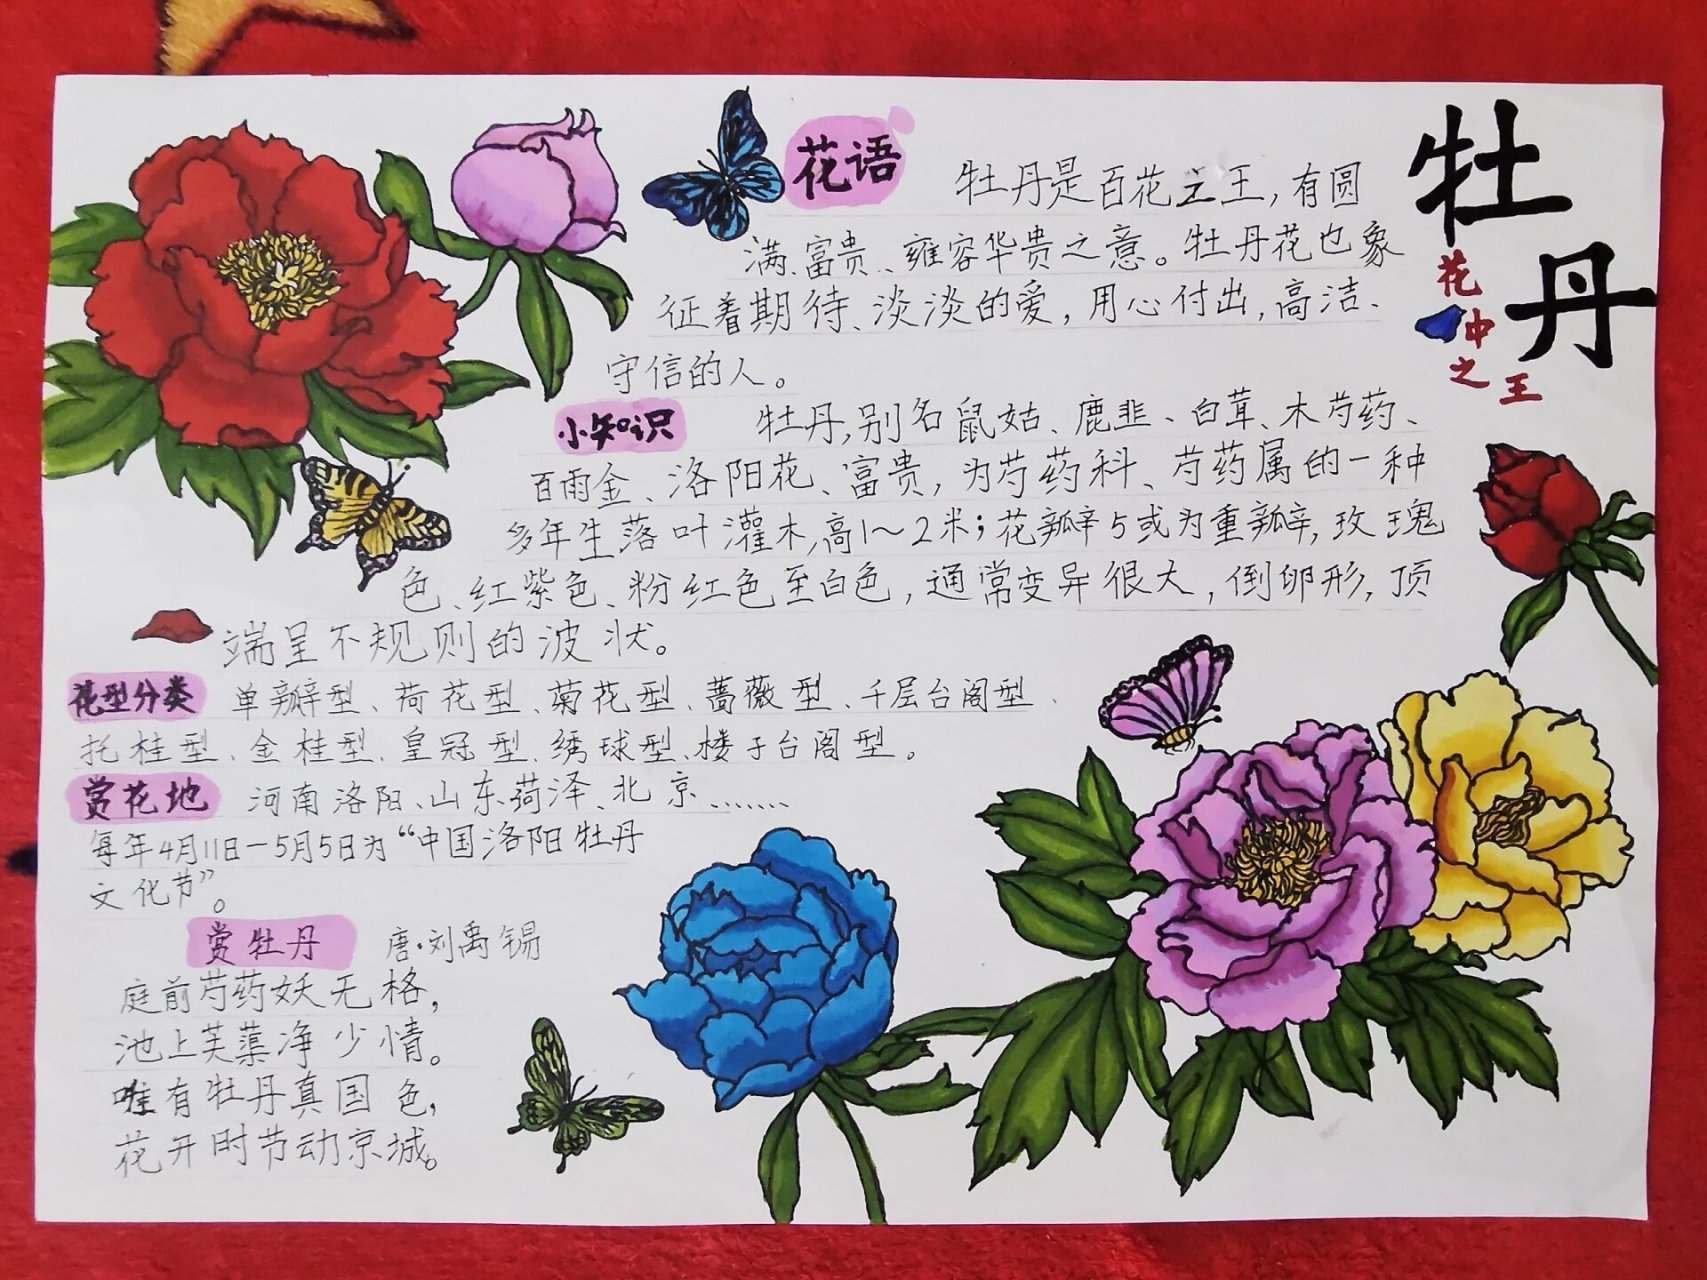 牡丹
花中之王
花语
牡丹是百花之王，有圆
满、富贵、雍容华贵之意。牡丹花也象
征着期待、淡淡的爱，用心付出，高洁、
守信的人。
小知识
牡丹，别名鼠姑、鹿韭、白茸、木芍药、
百雨金、洛阳花、富贵，为芍药科、芍药属的一种
多年生落叶灌木，高1～2米；花瓣5或为重瓣，玫瑰
色、红紫色、粉红色至白色，通常变异很大，倒卵形，顶
端呈不规则的波状。
花型分类 单瓣型、荷花型、菊花型、蔷薇型、千层台阁型、
托桂型、金桂型、皇冠型、绣球型、楼子台阁型。
赏花地 河南洛阳、山东菏泽、北京.......
每年4月11日—5月5日为“中国洛阳牡丹
文化节”。
赏牡丹 唐·刘禹锡
庭前芍药妖无格，
池上芙蕖净少情。
唯有牡丹真国色，
花开时节动京城。